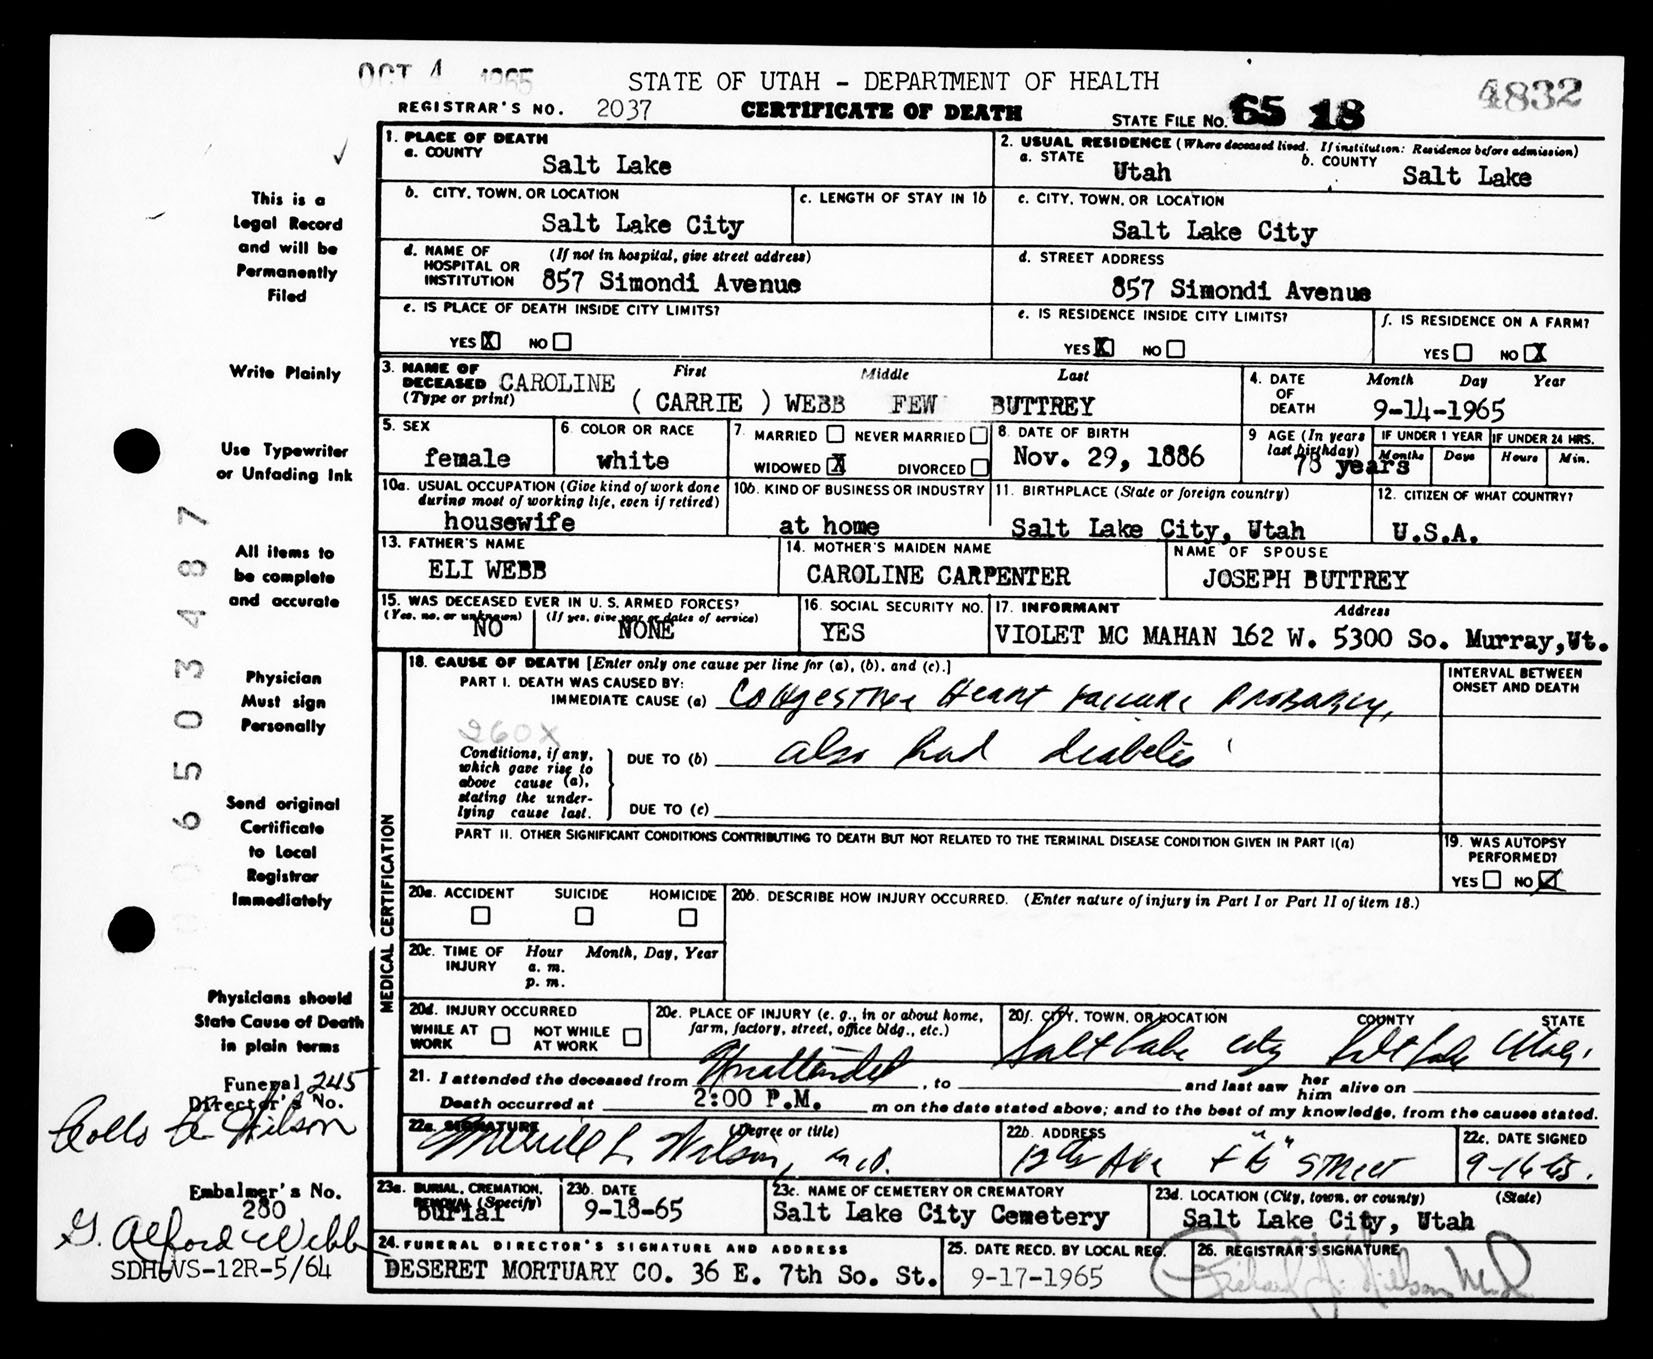 OCT 4 1965
STATE OF UTAH - DEPARTMENT OF HEALTH
4832
REGISTRAR'S NO. 2037 CERTIFICATE OF DEATH STATE FILE NO. 65 18
1. PLACE OF DEATH
a. COUNTY Salt Lake
2. USUAL RESIDENCE (Where deceased lived. If institution: Residence before admission)
a. STATE Utah b. COUNTY Salt Lake
b. CITY, TOWN, OR LOCATION Salt Lake City
c. LENGTH OF STAY IN 1b
c. CITY, TOWN, OR LOCATION Salt Lake City
d. NAME OF HOSPITAL OR INSTITUTION (If not in hospital, give street address) 857 Simondi Avenue
d. STREET ADDRESS 857 Simondi Avenue
e. IS PLACE OF DEATH INSIDE CITY LIMITS?
YES X NO
e. IS RESIDENCE INSIDE CITY LIMITS?
YES X NO
f. IS RESIDENCE ON A FARM?
YES NO X
3. NAME OF DECEASED (Type or print) First Middle Last
CAROLINE
( CARRIE ) WEBB FEW BUTTREY
4. DATE OF DEATH Month Day Year
9-14-1965
5. SEX female
6. COLOR OR RACE white
7. MARRIED NEVER MARRIED
WIDOWED X DIVORCED
8. DATE OF BIRTH Nov. 29, 1886
9 AGE (In years last birthday) 78 years
IF UNDER 1 YEAR IF UNDER 24 HRS.
Months Days Hours Min.
10a. USUAL OCCUPATION (Give kind of work done during most of working life, even if retired)
housewife
10b. KIND OF BUSINESS OR INDUSTRY
at home
11. BIRTHPLACE (State or foreign country)
Salt Lake City, Utah
12. CITIZEN OF WHAT COUNTRY?
U.S.A.
13. FATHER'S NAME
ELI WEBB
14. MOTHER'S MAIDEN NAME
CAROLINE CARPENTER
NAME OF SPOUSE
JOSEPH BUTTREY
15. WAS DECEASED EVER IN U. S. ARMED FORCES?
(Yes, no, or unknown) (If yes, give war or dates of service)
NO NONE
16. SOCIAL SECURITY NO.
YES
17. INFORMANT Address
VIOLET MC MAHAN 162 W. 5300 So. Murray, Ut.
MEDICAL CERTIFICATION
18. CAUSE OF DEATH [Enter only one cause per line for (a), (b), and (c).]
PART I. DEATH WAS CAUSED BY:
IMMEDIATE CAUSE (a) Congestive Heart Failure Probably,
260X
Conditions, if any, which gave rise to above cause (a), stating the underlying cause last.
DUE TO (b) also had diabetes
DUE TO (c)
INTERVAL BETWEEN ONSET AND DEATH
PART II. OTHER SIGNIFICANT CONDITIONS CONTRIBUTING TO DEATH BUT NOT RELATED TO THE TERMINAL DISEASE CONDITION GIVEN IN PART I(a)
19. WAS AUTOPSY PERFORMED?
YES NO
20a. ACCIDENT SUICIDE HOMICIDE
20b. DESCRIBE HOW INJURY OCCURRED. (Enter nature of injury in Part I or Part II of item 18.)
20c. TIME OF INJURY Hour Month, Day, Year
a. m.
p. m.
20d. INJURY OCCURRED
WHILE AT WORK NOT WHILE AT WORK
20e. PLACE OF INJURY (e. g., in or about home, farm, factory, street, office bldg., etc.)
20f. CITY, TOWN, OR LOCATION COUNTY STATE
Salt Lake City Salt Lake Utah
21. I attended the deceased from Unattended, to and last saw her him alive on
Death occurred at 2:00 P.M. m on the date stated above; and to the best of my knowledge, from the causes stated.
22a. SIGNATURE (Degree or title)
Merrill L. Wilson, M.D.
22b. ADDRESS
12th Ave + "E" Street
22c. DATE SIGNED
9-16-65.
23a. BURIAL, CREMATION, REMOVAL (Specify)
Burial
23b. DATE
9-18-65
23c. NAME OF CEMETERY OR CREMATORY
Salt Lake City Cemetery
23d. LOCATION (City, town, or county) (State)
Salt Lake City, Utah
24. FUNERAL DIRECTOR'S SIGNATURE AND ADDRESS
DESERET MORTUARY CO. 36 E. 7th So. St.
25. DATE RECD. BY LOCAL REG.
9-17-1965
26. REGISTRAR'S SIGNATURE
This is a
Legal Record
and will be
Permanently
Filed
Write Plainly
Use Typewriter
or Unfading Ink
All items to
be complete
and accurate
Physician
Must sign
Personally
Send original
Certificate
to Local
Registrar
Immediately
Physicians should
State Cause of Death
in plain terms
Funeral 245
Director's No.
Embalmer's No.
280
G. Alford Webb
SDH6VS-12R-5/64
650 3487